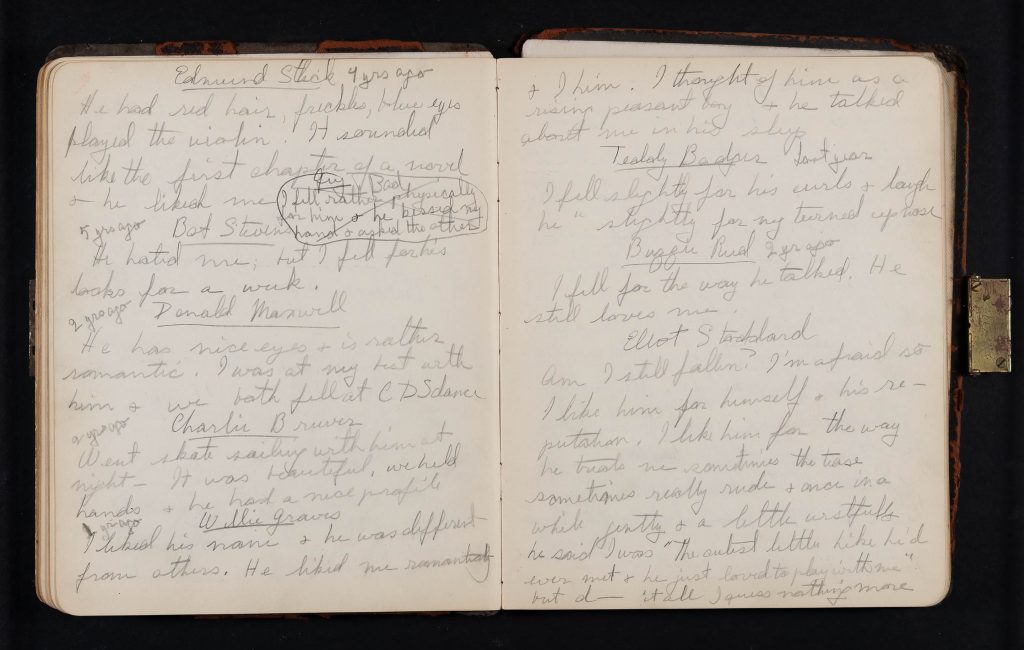 Edmund Stick 4 yrs ago
He had red hair, freckles, blue eyes
played the violin. It sounded
like the first chapter of a novel
& he liked me
Guy Bad
I fell rather physically
for him & he kissed my
hand & asked the other
5 yrs ago Bat Stevens
He hated me; but I fell for his
looks for a week.
2 yrs ago Donald Maxwell
He has nice eyes & is rather
romantic. I was at my best with
him & we both fell at CDS dance
2 yrs ago Charlie Bruver
Went skate sailing with him at
night – It was beautiful, we held
hands & he had a nice profile
1 yr ago Willie Graves
I liked his name & he was different
from others. He liked me romantically
& I him. I thought of him as a
rising peasant boy & he talked
about me in his sleep
Teddy Badger last year
I fell slightly for his curls & laugh
he " slightly for my turned up nose
Buzzie Rud 2 yr ago
I fell for the way he talked. He
still loves me.
Eliot Stoddard
Am I still fallen? I'm afraid so
I like him for himself & his re-
putation. I like him for the way
he treats me sometimes the tease
sometimes really rude & once in a
while gently & a little wistfully
he said I was "The cutest little like he'd
ever met & he just loved to play with me"
but d— it all I guess nothing more